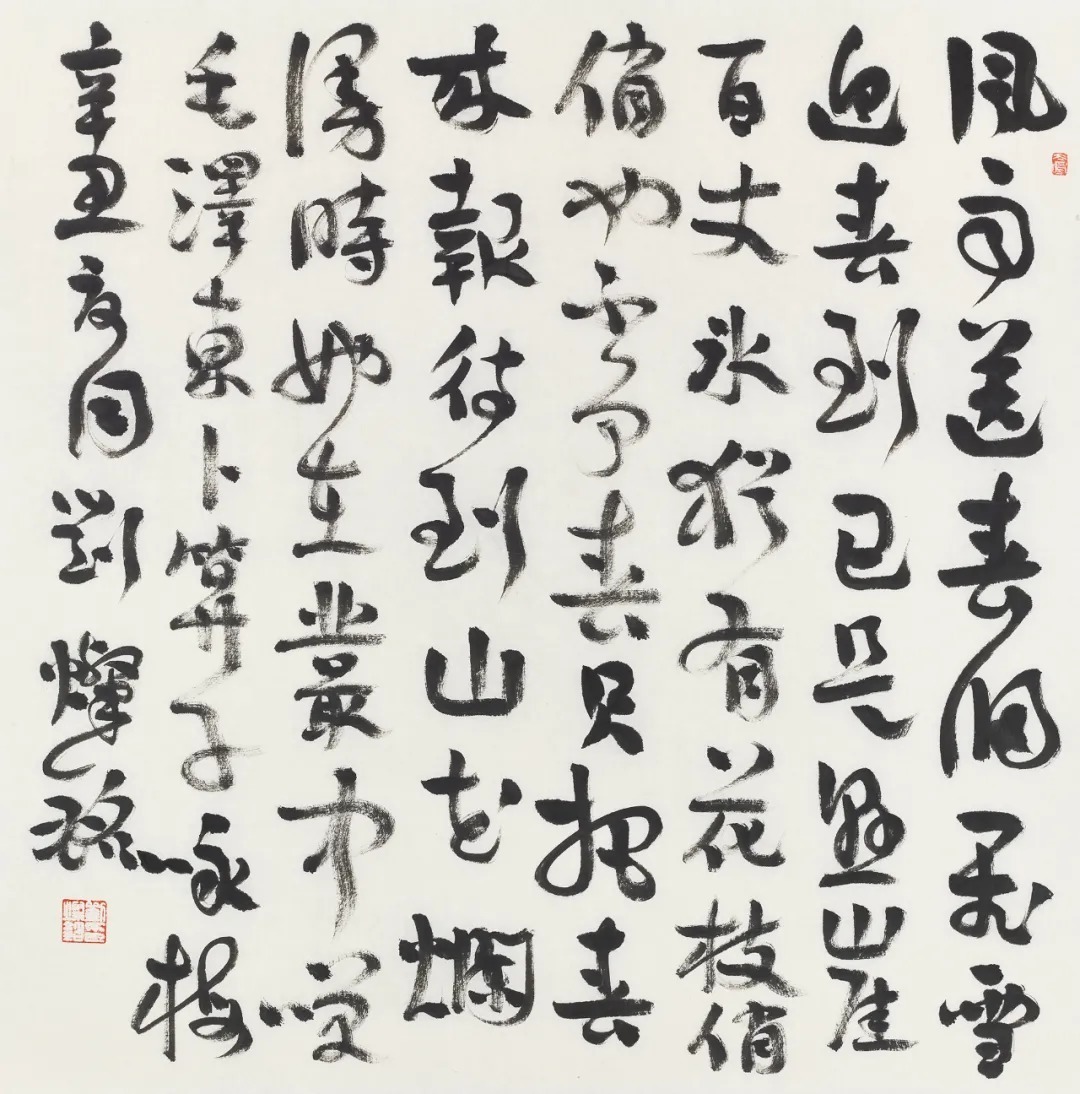 風雨送春歸飛雪
迎春到已是懸崖
百丈冰猶有花枝俏
俏也不爭春只把春
來報待到山花爛
漫時她在叢中笑
毛澤東卜算子咏梅
辛丑夏劉燦銘